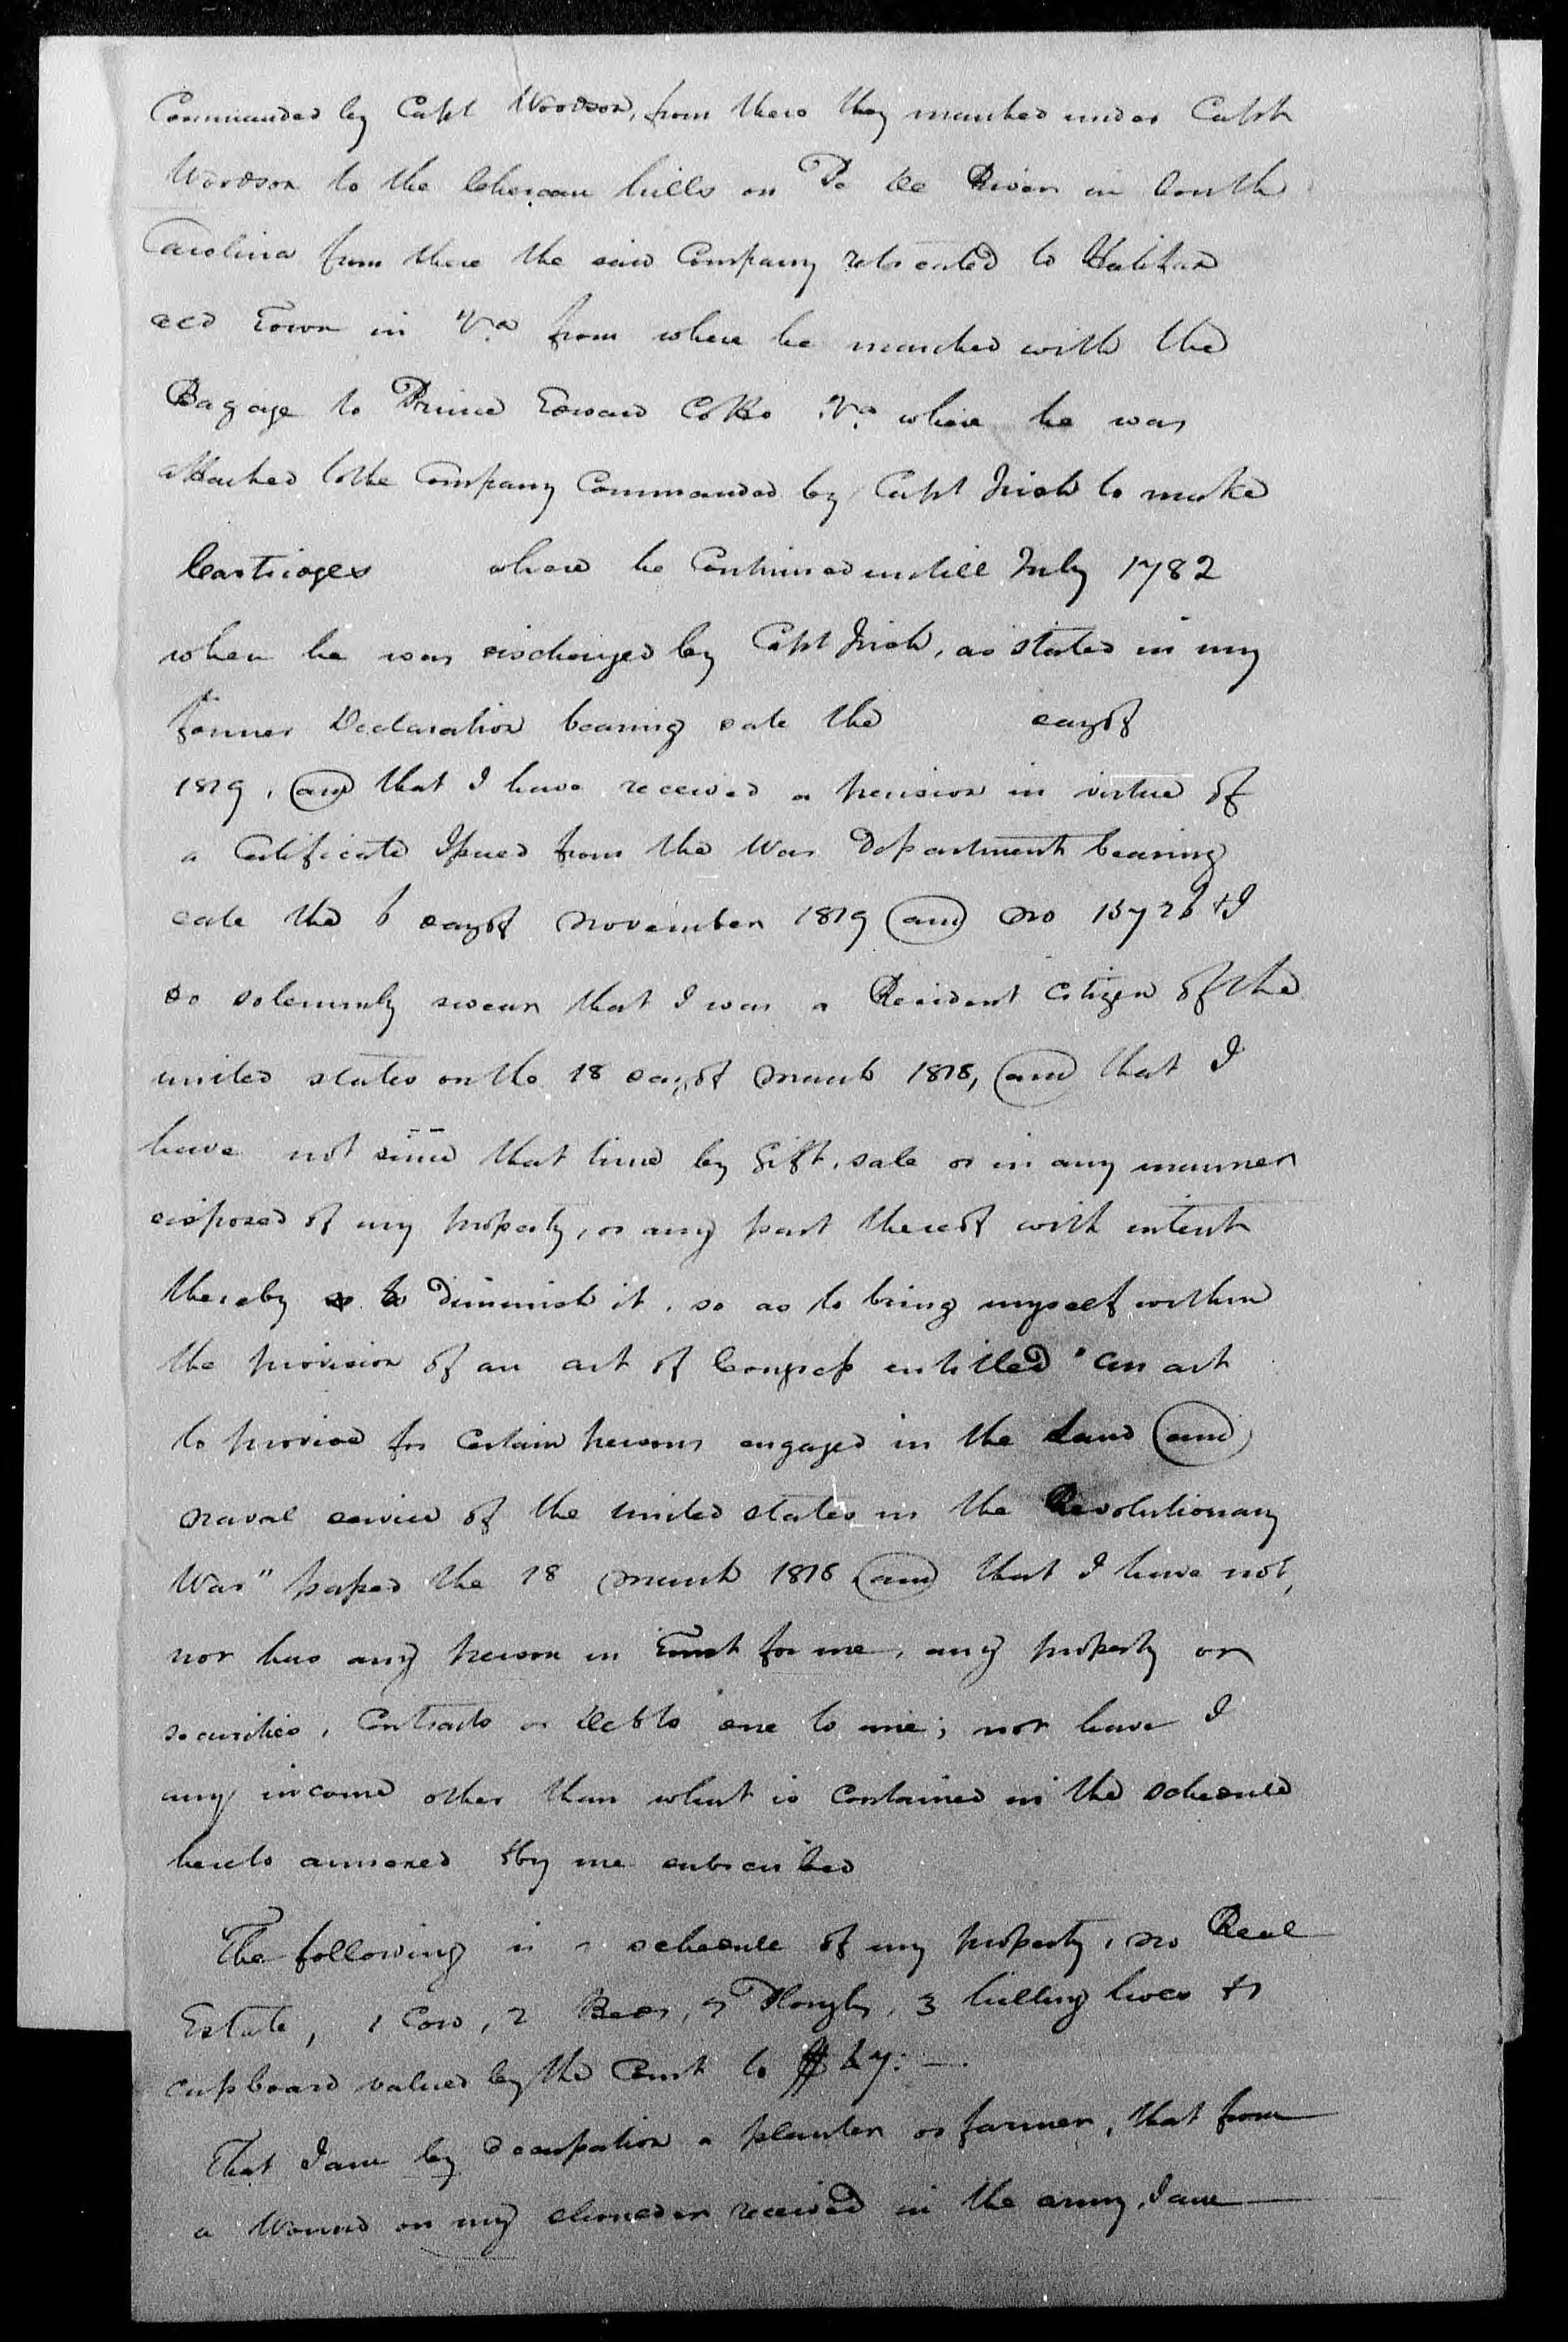 Commanded by Capt Woodson, from there they marched under Capt
Woodson to the Cheraw hills on Pe Dee River in South
Carolina from there the said Company retreated to Halifax
old Town in Va from where he marched with the
Bagage to Prince Edward Co Ho Va where he was
attached to the Company Commanded by Capt Irish to make
Cartriages where he Continued untill July 1782
when he was discharged by Capt Irish, as stated in my
former Declaration bearing date the day of
1819, and that I have received a pension in virtue of
a Certificate Issued from the War Department bearing
date the 6 day of November 1819 and No 15726 & I
do solemnly swear that I was a Resident Citizen of the
united states on the 18 day of March 1818, and that I
have not since that time by Gift, sale or in any manner
disposed of my property, or any part thereof with intent
thereby to diminish it, so as to bring myself within
the provision of an act of Congress entitled "an act
to provide for Certain persons engaged in the Land and
Naval service of the United states in the Revolutionary
War" passed the 18 March 1818 and that I have not,
nor has any person in Trust for me, any property or
securities, Contracts or Debts due to me; nor have I
any income other than what is Contained in the schedule
hereto annexed & by me subscribed
The following is a schedule of my property, No Real
Estate, 1 Cow, 2 Beds, 2 Ploughs, 3 hilling hoes & 1
cupboard valued by the Court to $
That I am by Occupation a planter or farmer, that from
a Wound on my shoulder received in the army, I am